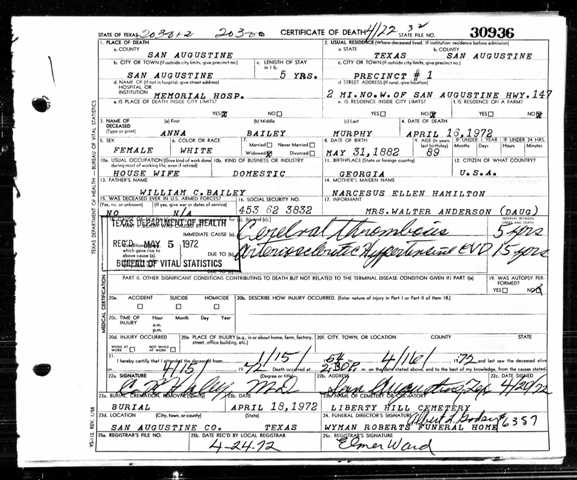 STATE OF TEXAS CERTIFICATE OF DEATH 4/72 STATE FILE NO. 30936
1. PLACE OF DEATH 2. USUAL RESIDENCE (Where deceased lived. If institution: residence before admission)
a. COUNTY a. STATE b. COUNTY
SAN AUGUSTINE TEXAS SAN AUGUSTINE
b. CITY OR TOWN (If outside city limits, give precinct no.) c. LENGTH OF STAY c. CITY OR TOWN (If outside city limits, give precinct no.)
SAN AUGUSTINE 5 YRS. PRECINCT # 1
d. NAME OF (If not in hospital, give street address) HOSPITAL OR INSTITUTION d. STREET ADDRESS (If rural, give location)
MEMORIAL HOSP. 2 MI.NO.W.OF SAN AUGUSTINE HWY.147
e. IS PLACE OF DEATH INSIDE CITY LIMITS? e. IS RESIDENCE INSIDE CITY LIMITS? f. IS RESIDENCE ON A FARM?
YES NO YES NO YES NO
3. NAME OF DECEASED (Type or print) (a) First (b) Middle (c) Last 4. DATE OF DEATH
ANNA BAILEY MURPHY APRIL 16,1972
5. SEX 6. COLOR OR RACE 7. Married Never Married Widowed Divorced 8. DATE OF BIRTH
FEMALE WHITE MAY 31,1882 89
10a. USUAL OCCUPATION 10b. KIND OF BUSINESS OR INDUSTRY 11. BIRTHPLACE (State or foreign country) 12. CITIZEN OF WHAT COUNTRY?
HOUSE WIFE DOMESTIC GEORGIA U.S.A.
13. FATHER'S NAME 14. MOTHER'S MAIDEN NAME
WILLIAM C.BAILEY NARCESUS ELLEN HAMILTON
15. WAS DECEASED EVER IN U.S. ARMED FORCES? 16. SOCIAL SECURITY NO. 17. INFORMANT
NO N/A 453 62 3832 MRS.WALTER ANDERSON (DAUG)
TEXAS DEPARTMENT OF HEALTH
IMMEDIATE CAUSE (a) Cerebral thrombosis 5 yrs
REC'D MAY 5 1972
DUE TO (b) Arteriosclerotic Hypertensive CVD 15 yrs
BUREAU OF VITAL STATISTICS
DUE TO (c)
PART II. OTHER SIGNIFICANT CONDITIONS CONTRIBUTING TO DEATH BUT NOT RELATED TO THE TERMINAL DISEASE CONDITION GIVEN IN PART I(a) 19. WAS AUTOPSY PERFORMED?
YES NO
20a. ACCIDENT SUICIDE HOMICIDE 20b. DESCRIBE HOW INJURY OCCURRED. (Enter nature of injury in Part I or Part II of Item 18.)
20c. TIME OF INJURY Hour Month Day Year
a.m.
p.m.
20d. INJURY OCCURRED 20e. PLACE OF INJURY (e.g., in or about home, farm, factory, street, office building, etc.) 20f. CITY, TOWN, OR LOCATION COUNTY STATE
21. I hereby certify that I attended the deceased from 1/15/ 4/16/ 72 and last saw the deceased alive
4/15/ 72 Death occurred at 2:30P. m. on the date stated above, and to the best of my knowledge, from the causes stated.
22a. SIGNATURE (Degree or title) 22b. ADDRESS 22c. DATE SIGNED
M.D. San Augustine, Tex 4/20/72
23a. BURIAL, CREMATION, REMOVAL 23b. DATE 23c. NAME OF CEMETERY OR CREMATORY
BURIAL APRIL 18,1972 LIBERTY HILL CEMETERY
23d. LOCATION (City, town, or county) (State) 24. FUNERAL DIRECTOR'S SIGNATURE 6387
SAN AUGUSTINE CO. TEXAS WYMAN ROBERTS FUNERAL HOME
25a. REGISTRAR'S FILE NO. 25b. DATE REC'D BY LOCAL REGISTRAR 25c. REGISTRAR'S SIGNATURE
4-24-72 Elmer Ward
TEXAS DEPARTMENT OF HEALTH — BUREAU OF VITAL STATISTICS
MEDICAL CERTIFICATION